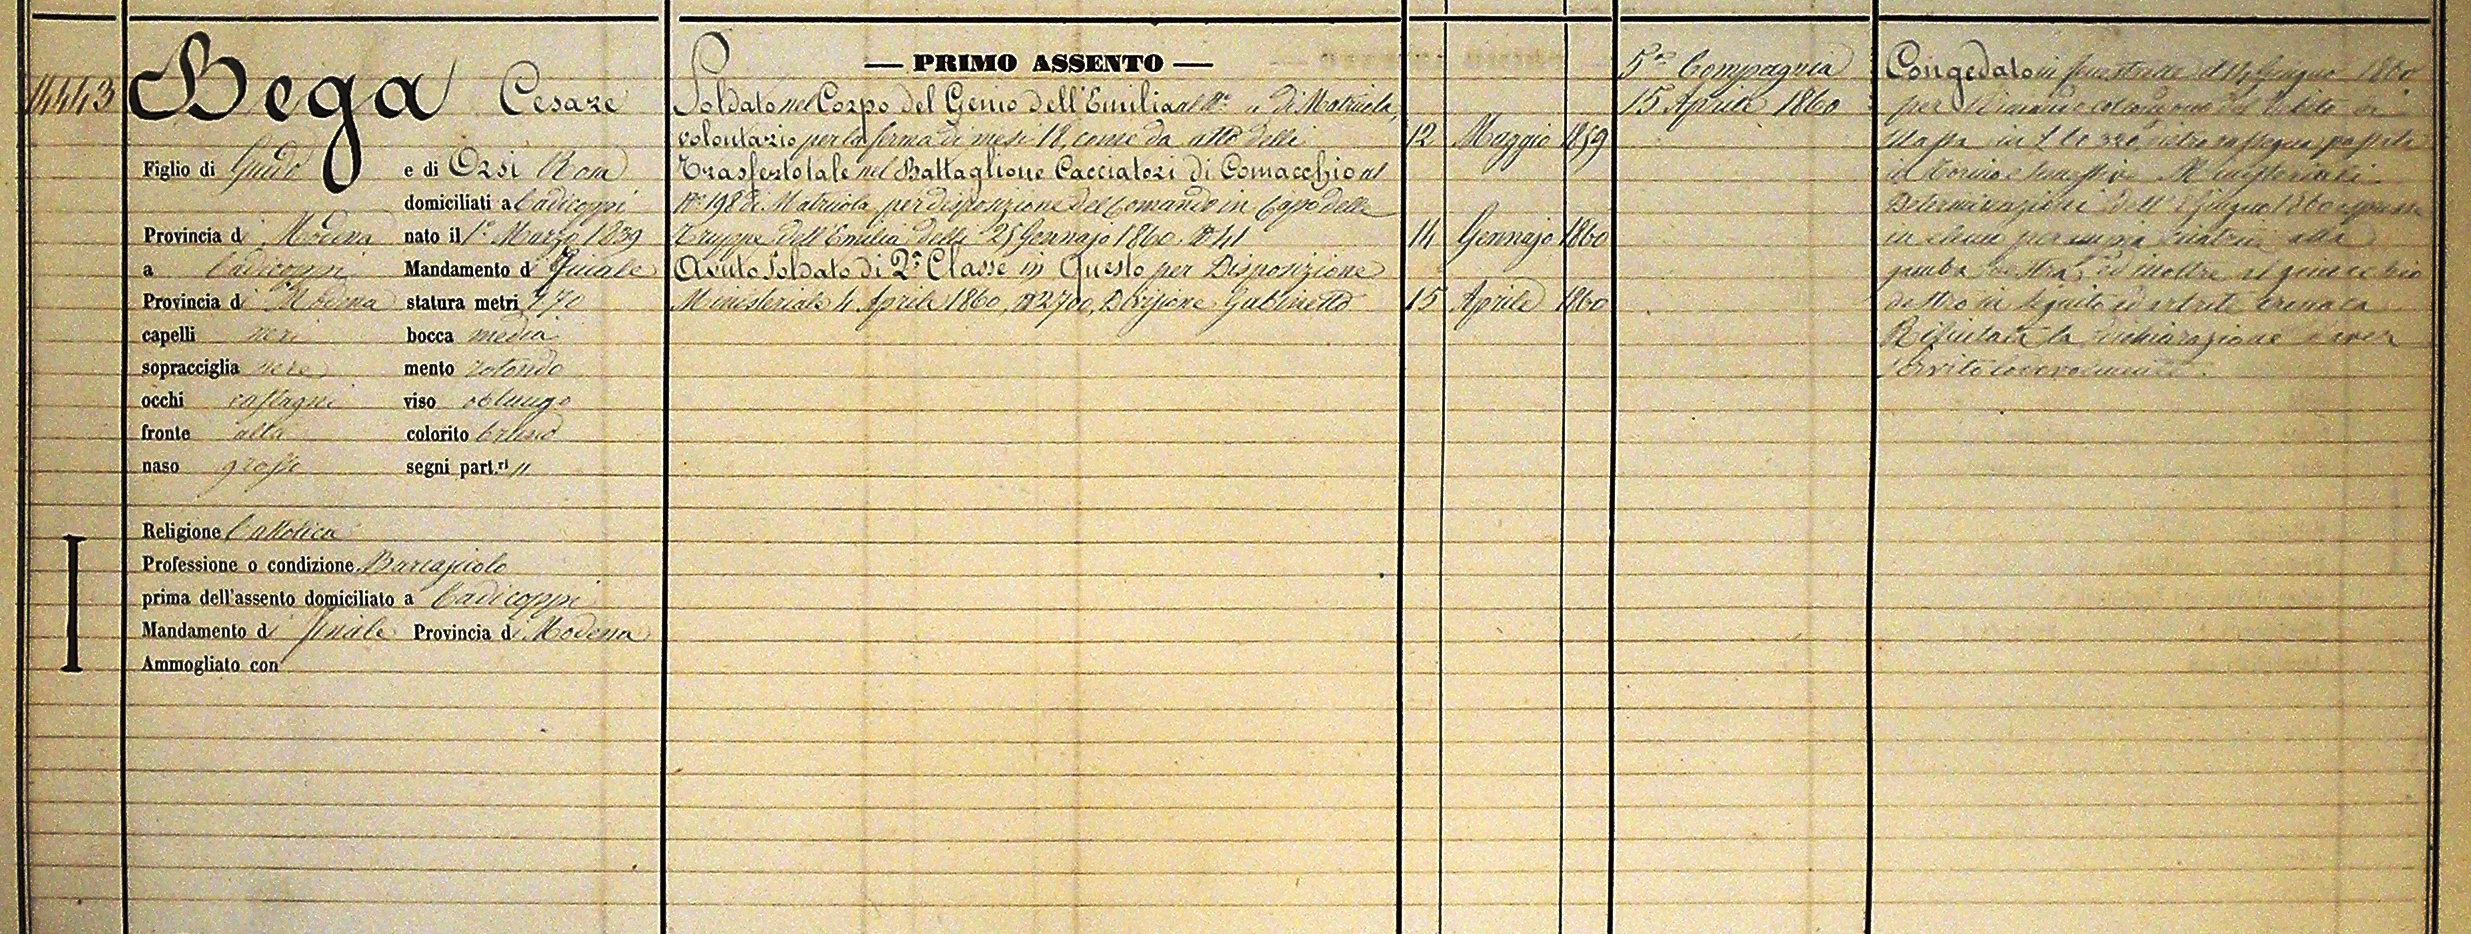 14443
Bega Cesare
Figlio di Guido e di Orsi Rosa
domiciliati a Cadicoppi
Provincia di Modena nato il 1° Marzo 1839
a Cadicoppi Mandamento di Finale
Provincia di Modena statura metri 1,70
capelli neri bocca media
sopracciglia nere mento rotondo
occhi castagni viso oblungo
fronte alta colorito bruno
naso grosso segni part.ri "
Religione Cattolica
Professione o condizione Barcajuolo
prima dell'assento domiciliato a Cadicoppi
Mandamento di Finale Provincia di Modena
Ammogliato con
— PRIMO ASSENTO —
Soldato nel Corpo del Genio dell'Emilia al N° " di Matricola,
volontario per la ferma di mesi 18, come da atto delli 12 Maggio 1859
Trasferto tale nel Battaglione Cacciatori di Comacchio al
N° 198 di Matricola per disposizione del Comando in Capo delle
Truppe dell'Emilia delli 25 Gennajo 1860 N° 41 14 Gennajo 1860
Avuto Soldato di 2ª Classe in Questo per Disposizione
Ministeriale 4 Aprile 1860, N° 2700, Divisione Gabinetto 15 Aprile 1860
5ª Compagnia
15 Aprile 1860
Congedato in Giugno 1860
per del debito di
Massa in passata
in Torino e Ministeriali
Determinazione dell' Giugno 1860
in alla
gamba ed inoltre al ginocchio
destro in seguito
Rifiutata la dichiarazione d'aver
servito lodevolmente.